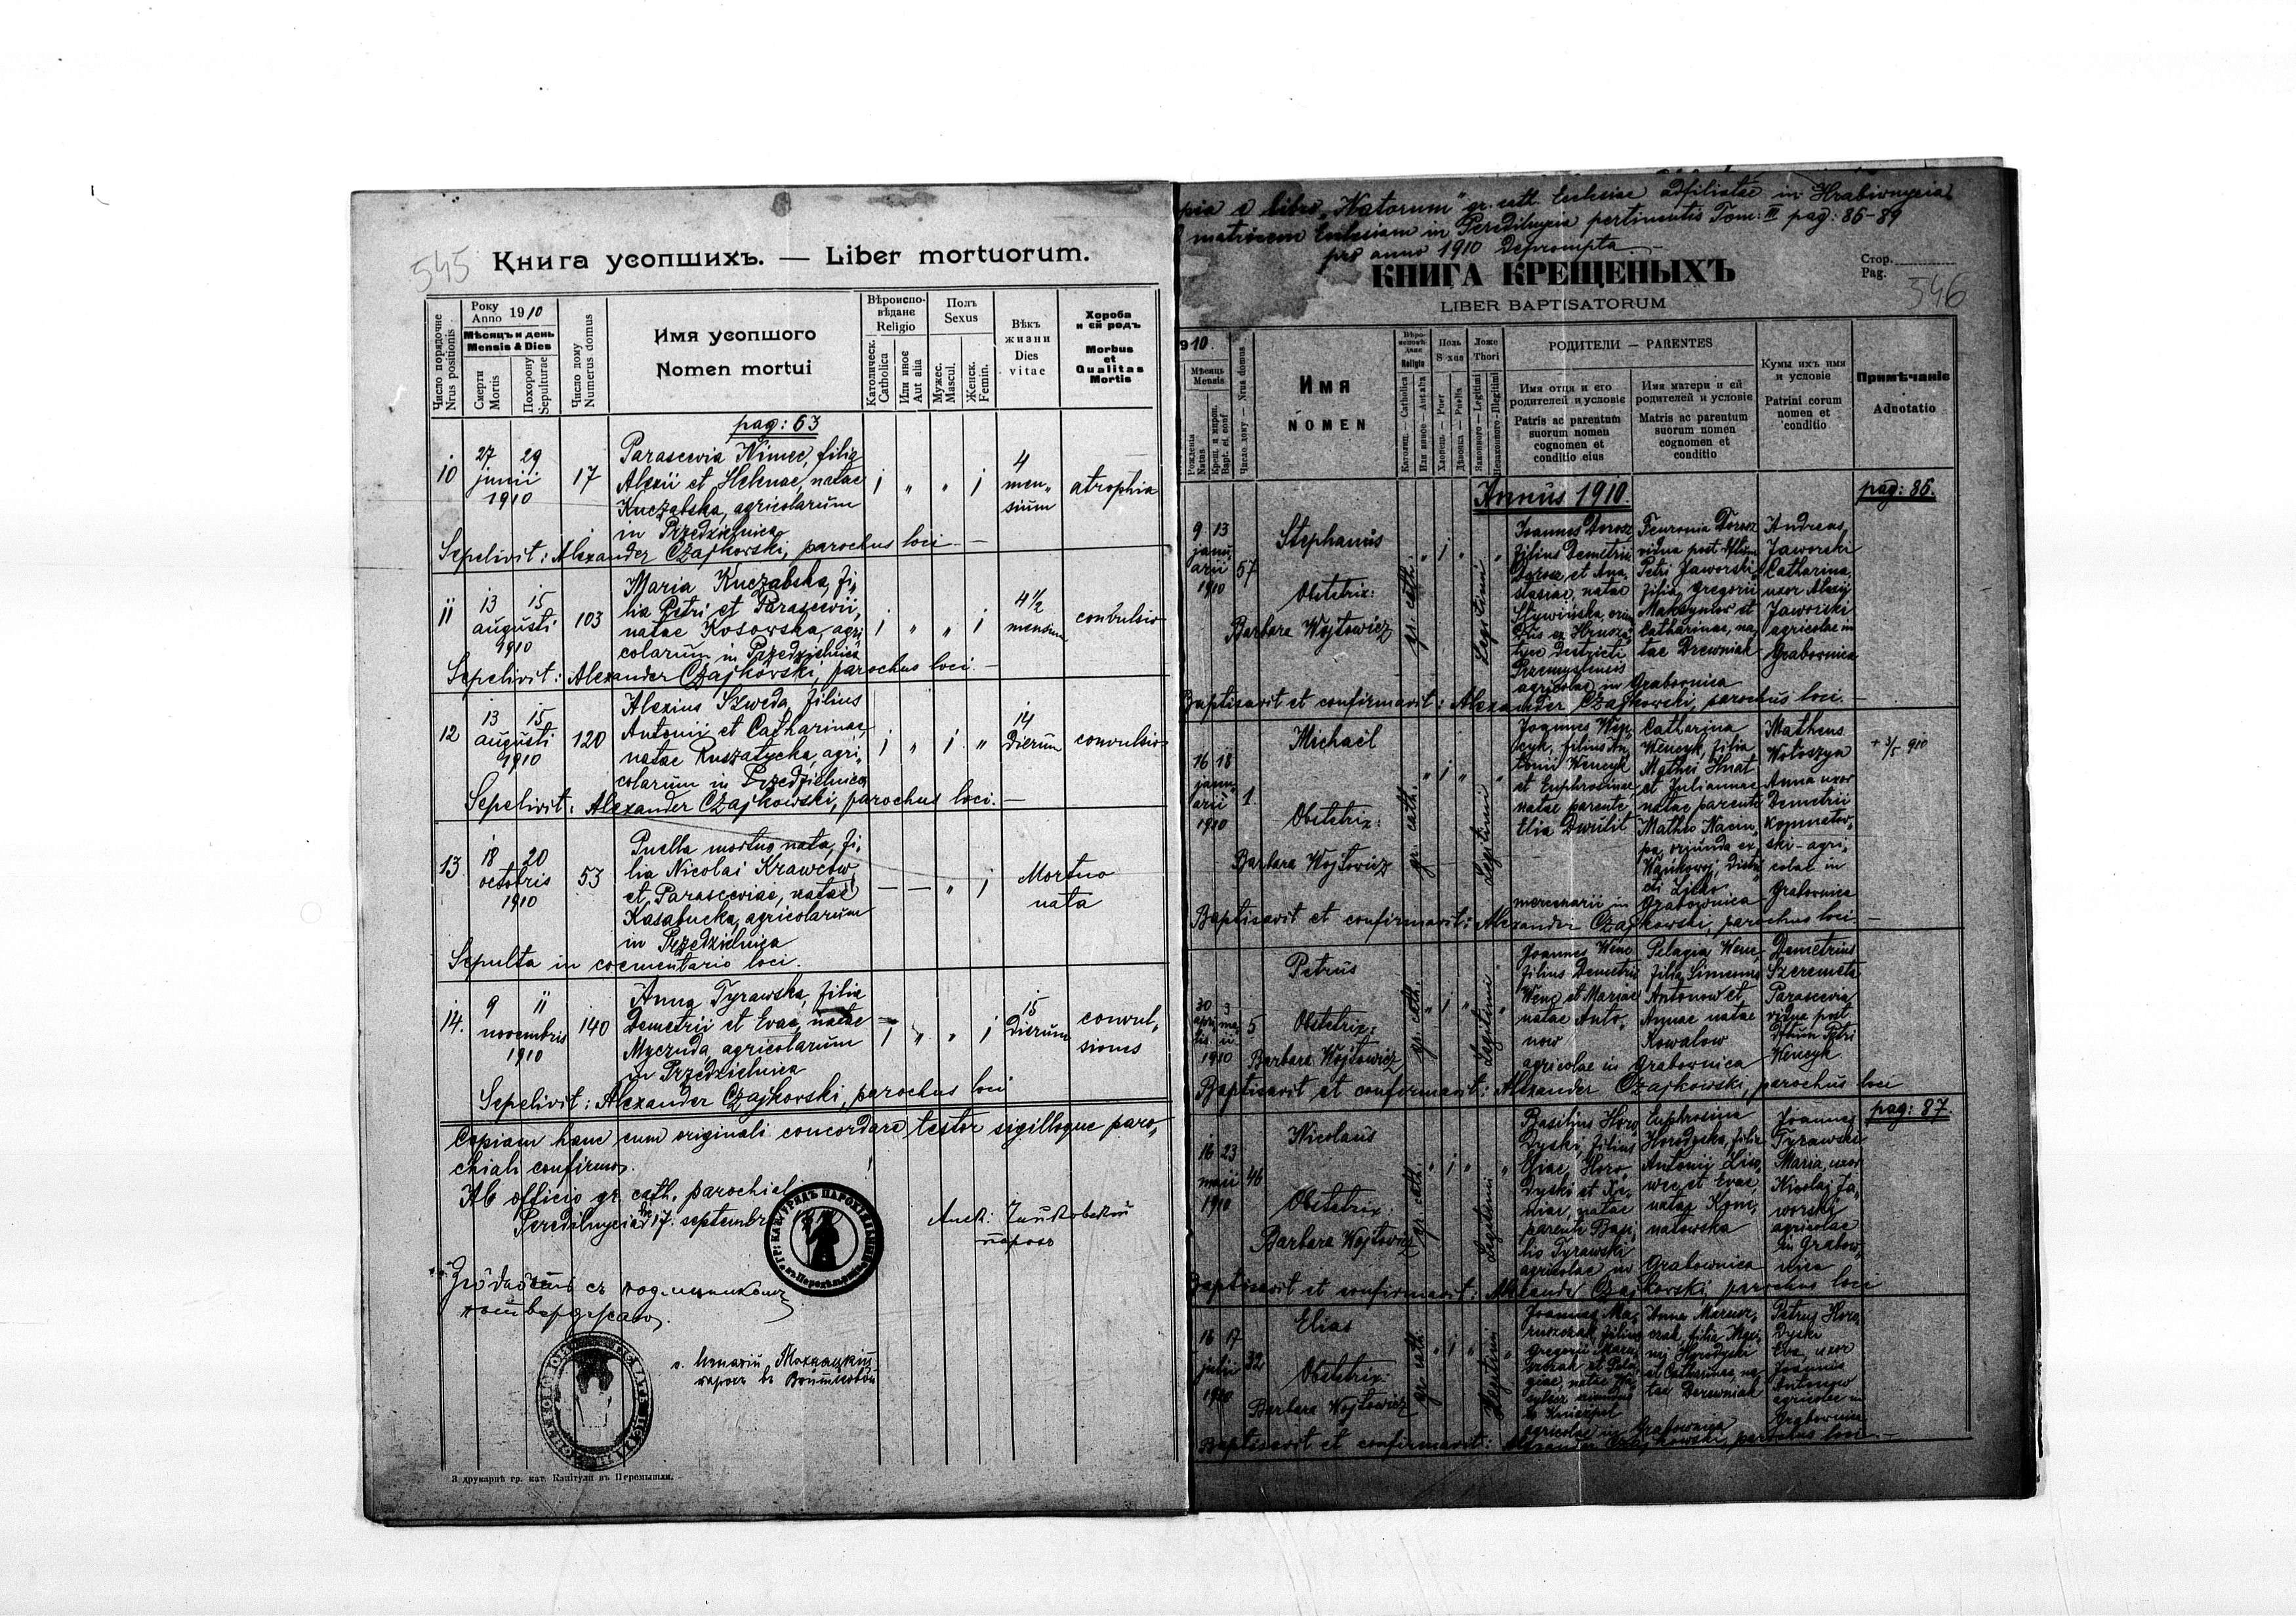 545
Книга усопшихъ. — Liber mortuorum.
Число порядочне
Nrus positionis
Року
Anno 1910
Мѣсяцъ и день
Mensis & Dies
Смерти
Mortis
Похорону
Sepulturae
Число дому
Numerus domus
Имя усопшого
Nomen mortui
Вѣроиспо-
вѣдане
Religio
Католическ.
Catholica
Или иное
Aut alia
Полъ
Sexus
Мужес.
Mascul.
Женск.
Femin.
Вѣкъ
жизни
Dies
vitae
Хороба
и єй родъ
Morbus
et
Qualitas
Mortis
pag: 63
10
27 29
junii
1910
17
Parascevia Nimec, filia
Alexii et Helenae, natae
Kuczabska, agricolarum
in Przedzielnica
1 „ „ 1
4
men„
sium
atrophia
Sepelivit: Alexander Czajkowski, parochus loci. —
11
13 15
augusti
1910
103
Maria Kuczabska, fi„
lia Petri et Parascevii,
natae Kosowska, agri„
colarum in Przedzielnica
1 „ „ 1
4½
mensium
convulsio
Sepelivit: Alexander Czajkowski, parochus loci. —
12
13 15
augusti
1910
120
Alexius Szweda, filius
Antonii et Catharinae,
natae Ruszatycka, agri„
colarum in Przedzielnica
1 „ 1 „
14
dierum
convulsio
Sepelivit: Alexander Czajkowski, parochus loci. —
13
18 20
octobris
1910
53
Puella mortuo nata, fi„
lia Nicolai Krawciow
et Parasceviae, natae
Kasabucka, agricolarum
in Przedzielnica
— — „ 1
Mortuo
nata
Sepulta in coementario loci.
14.
9 11
novembris
1910
140
Anna Tyrawska, filia
Demetrii et Evae, natae
Myczuda, agricolarum
in Przedzielnica
1 „ „ 1
15
dierum
convul„
sions
Sepelivit: Alexander Czajkowski, parochus loci
Copiam hanc cum originali concordare testor sigilloque paro„
chiali confirmo.
Ab officio gr. cath. parochial
Peredilnycia de 17. septembr
парох
потверджаю.
З друкарнѣ гр. кат. Капітули въ Перемышли.
pia e libro „Natorum" gr. cath. Ecclesiae adfiliatae in Hrabiwnycia
matricem Ecclesiam in Peredilnycia pertinentis Tom: III pag: 86-89
pro anno 1910 deprompta. —
КНИГА КРЕЩЕНЫХЪ
LIBER BAPTISATORUM
Стор.
Pag.
546
910.
Мѣсяць
Mensis
Рождения
Natus
Крещ. и миром.
Bapt. et conf
Число дому — Nrus domus
Имя
NOMEN
Вѣро-
исповѣ-
дане
Religio
Католиц. — Catholica
Или иное — Aut alia
Полъ
Sexus
Хлопець — Puer
Дѣвока — Puella
Ложе
Thori
Законного — Legitimi
Незаконного — Illegitimi
РОДИТЕЛИ — PARENTES
Имя отця и его
родителей и условіе
Patris ac parentum
suorum nomen
cognomen et
conditio eius
Имя матери и єй
родителей и условіе
Matris ac parentum
suorum nomen
cognomen et
conditio
Кумы ихъ имя
и условіе
Patrini eorum
nomen et
conditio
Примѣчаніе
Adnotatio
Annus 1910.
pag: 86.
9 13
janu„
arii
1910
57
Stephanus
Obstetrix:
Barbara Wojtowicz
gr. cath.
„ 1 „
Legitimi
„
Joannes Dorosz
filius Demetrii
Dorosz et Ana„
stasiae, natae
Feuronia Dorosz
vidua post dftum
Petri Jaworski,
filia Gregorii
Maksymow et
Catharinae, na„
tae Drewniak
Andreas
Jaworski
Catharina,
uxor Alexii
Jaworski
agricolae in
Grabownica
Przemyslensis
agricolae in Grabownica
Baptisavit et confirmavit: Alexander Czajkowski, parochus loci. —
16 18
janu„
arii
1910
1
Michaël
Obstetrix:
Barbara Wojtowicz
gr. cath.
„ 1 „
Legitimi
„
Joannes Wen„
cyk, filius An„
tonii Wencyk
et Euphrosinae,
natae parente
Elia Dwulit
Catharina
Wencyk, filia
Mathei Hnat
et Juliannae
natae parente
Matheo Naum„
pa, oriunda ex
Wańkowej, distri„
cti Lisko
Matheus
Wołoszyn
Anna uxor
Demetrii
Kopnatow„
ski - agri„
colae in
Grabownica
+ 3/5 910
mercenarii in Grabownica
Baptisavit et confirmavit: Alexander Czajkowski, parochus loci. —
30 3
apri„ ma„
lis ii
1910
5
Petrus
Obstetrix:
Barbara Wojtowicz
gr. cath.
„ 1 „
Legitimi
„
Joannes Wenc
filius Demetrii
Wenc et Mariae
natae Anto„
now
Pelagia Wenc,
filia Simeonis
Antonow et
Annae natae
Kowalow
Demetrius
Szeremeta
Parascevia,
vidua post
dftum Petri
Wencyk
agricolae in Grabownica
Baptisavit et confirmavit: Alexander Czajkowski, parochus loci
pag: 87.
16 23
maii
1910
46
Nicolaus
Obstetrix:
Barbara Wojtowicz
gr. cath.
„ 1 „
Legitimi
„
Basilius Horo„
dyski, filius
Eliae Horo„
dyski et Xe„
niae, natae
parente Basi„
lio Tyrawski
Euphrosina
Horodyska, filia
Antonii Liw„
wec et Evae,
natae Kom„
natowska
Joannes
Tyrawski
Maria, uxor
Nicolai Ja„
worski
agricolae
in Grabow„
nica
agricolae in Grabownica
Baptisavit et confirmavit: Alexander Czajkowski, parochus loci
16 17
julii
1910
32
Elias
Obstetrix:
Barbara Wojtowicz
gr. cath.
„ 1 „
Legitimi
„
Joannes Ma„
ruszczak, filius
Gregorii Maru„
szczak et Pela„
giae, natae
Anna Marusz„
czak, filia
Horodyski
et Catharinae, na„
tae Derewniak
Petrus Horo„
dyski
Eva, uxor
Joannis
Antonow
agricolae in
Grabownica
agricolae in Grabownica
Baptisavit et confirmavit: Alexander Czajkowski, parochus loci. —